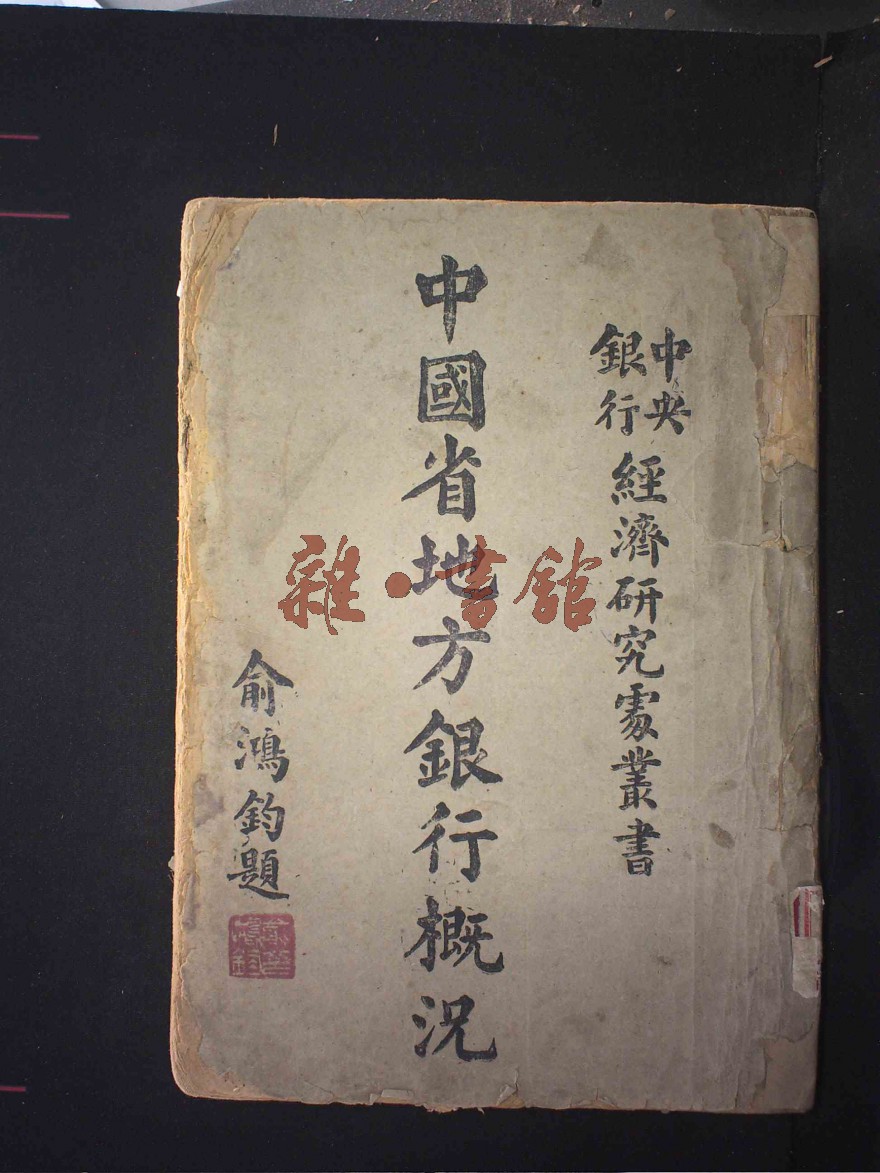 中央銀行經濟研究處叢書
中國省地方銀行概況
俞鴻鈞題
雜·書館